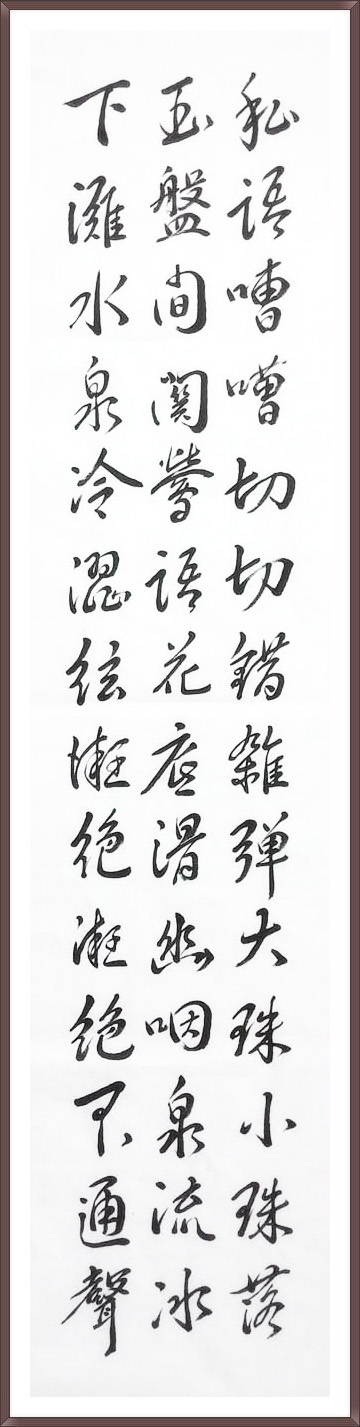 私語嘈嘈切切錯雜弹大珠小珠落
玉盤间関鶯語花底滑幽咽泉流冰
下灘水泉冷澀絃凝絶凝絶不通聲